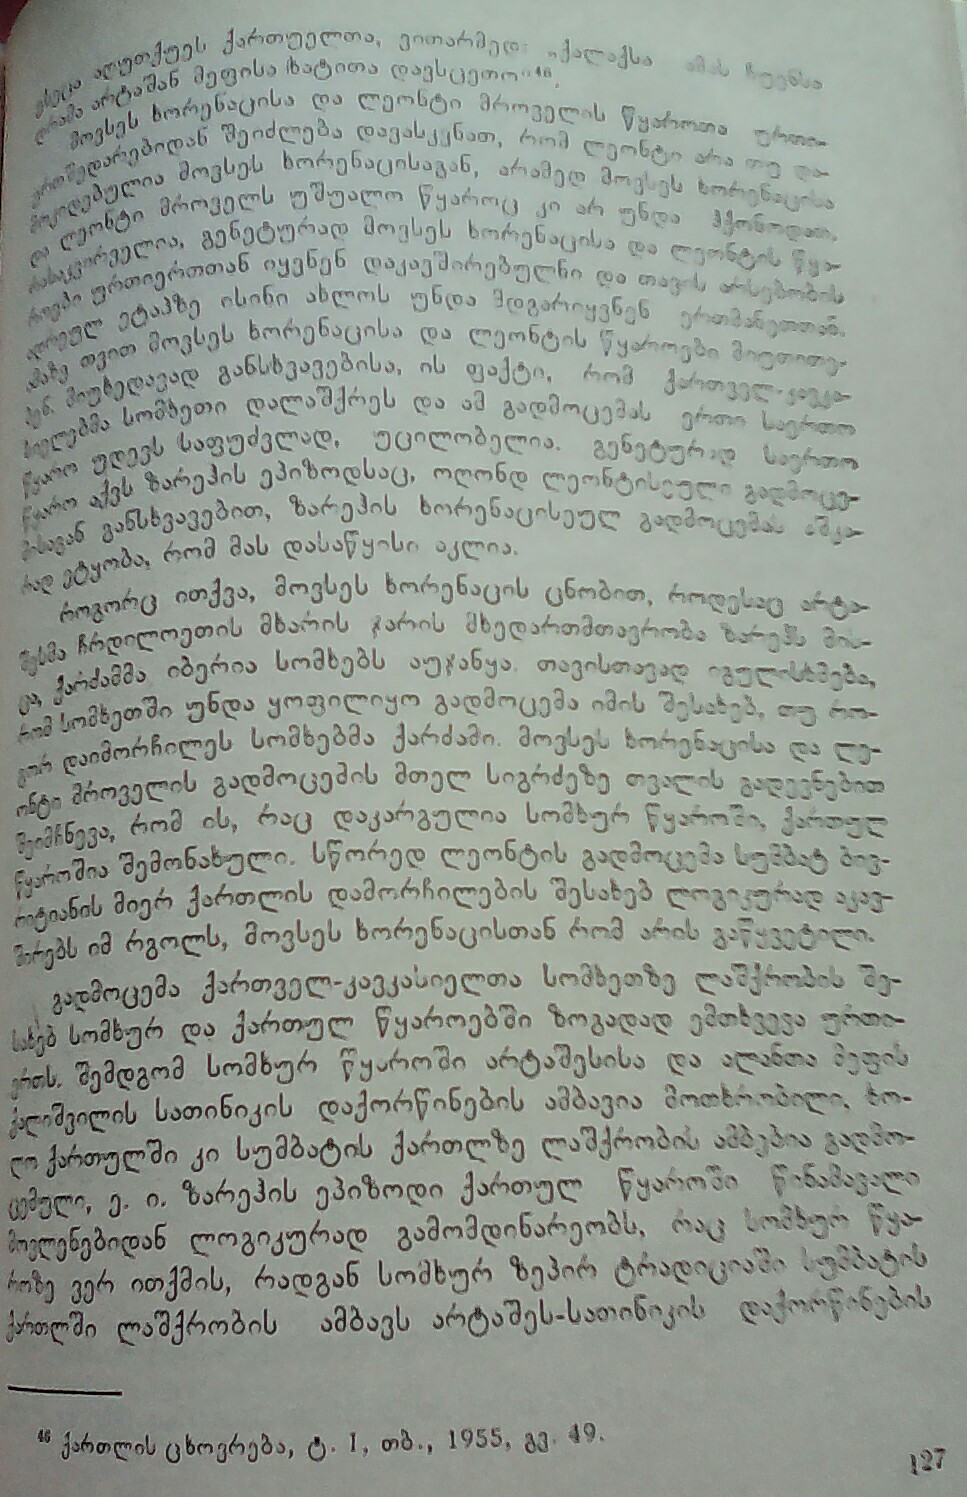 ესეცა აღუთქუეს ქართუელთა, ვითარმედ: „ქალაქსა ამას ჩუენსა
დრამა არტაშან მეფისა ხატითა დავსცეთო“⁴⁶.
მოვსეს ხორენაცისა და ლეონტი მროველის წყაროთა ურთი-
ერთშედარებიდან შეიძლება დავასკვნათ, რომ ლეონტი არა თუ და-
მოკიდებულია მოვსეს ხორენაცისაგან, არამედ მოვსეს ხორენაცისა
და ლეონტი მროველს უშუალო წყაროც კი არ უნდა ჰქონოდათ.
რასაკვირველია, გენეტურად მოვსეს ხორენაცისა და ლეონტის წყა-
როები ურთიერთთან იყვნენ დაკავშირებულნი და თავის არსებობის
ადრეულ ეტაპზე ისინი ახლოს უნდა მდგარიყვნენ ერთმანეთთან.
ამაზე თვით მოვსეს ხორენაცისა და ლეონტის წყაროები მიუთითე-
ბენ. მიუხედავად განსხვავებისა, ის ფაქტი, რომ ქართველ-კავკა-
სიელებმა სომხეთი დალაშქრეს და ამ გადმოცემას ერთი საერთო
წყარო უდევს საფუძვლად, უცილობელია. გენეტურად საერთო
წყარო აქვს ზარეჰის ეპიზოდსაც, ოღონდ ლეონტისეული გადმოცე-
მისაგან განსხვავებით, ზარეჰის ხორენაცისეულ გადმოცემას აშკა-
რად ეტყობა, რომ მას დასაწყისი აკლია.
როგორც ითქვა, მოვსეს ხორენაცის ცნობით, როდესაც არტა-
შესმა ჩრდილოეთის მხარის ჯარის მხედართმთავრობა ზარეჰს მის-
ცა, ქარძამმა იბერია სომხებს აუჯანყა. თავისთავად იგულისხმება,
რომ სომხეთში უნდა ყოფილიყო გადმოცემა იმის შესახებ, თუ რო-
გორ დაიმორჩილეს სომხებმა ქარძამი. მოვსეს ხორენაცისა და ლე-
ონტი მროველის გადმოცემის მთელ სიგრძეზე თვალის გადევნებით
შეიმჩნევა, რომ ის, რაც დაკარგულია სომხურ წყაროში, ქართულ
წყაროშია შემონახული. სწორედ ლეონტის გადმოცემა სუმბატ ბივ-
რიტიანის მიერ ქართლის დამორჩილების შესახებ ლოგიკურად აკავ-
შირებს იმ რგოლს, მოვსეს ხორენაცისთან რომ არის გაწყვეტილი.
გადმოცემა ქართველ-კავკასიელთა სომხეთზე ლაშქრობის შე-
სახებ სომხურ და ქართულ წყაროებში ზოგადად ემთხვევა ურთი-
ერთს. შემდგომ სომხურ წყაროში არტაშესისა და ალანთა მეფის
ქალიშვილის სათინიკის დაქორწინების ამბავია მოთხრობილი, ხო-
ლო ქართულში კი სუმბატის ქართლზე ლაშქრობის ამბებია გადმო-
ცემული, ე. ი. ზარეჰის ეპიზოდი ქართულ წყაროში წინამავალი
მოვლენებიდან ლოგიკურად გამომდინარეობს, რაც სომხურ წყა-
როზე ვერ ითქმის, რადგან სომხურ ზეპირ ტრადიციაში სუმბატის
ქართლში ლაშქრობის ამბავს არტაშეს-სათინიკის დაქორწინების
⁴⁶ ქართლის ცხოვრება, ტ. I, თბ., 1955, გვ. 49.
127